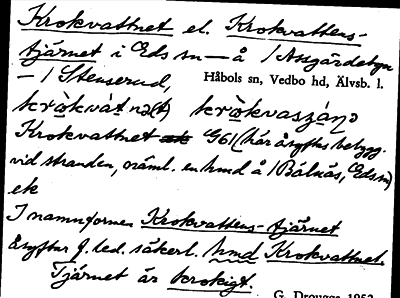 Krokvattnet el. Krokvattens-
tjärnet i Eds sn — å 1 Assgärdebyn
— 1 Stenserud, Håbols sn, Vedbo hd, Älvsb. l.
krò̱kvát nə(t) krò̱kvaszá̱ṇə
Krokvattnet G61 (här åsyftas bebygg.
vid stranden, näml. en hmd å 1 Bälnäs, Eds sn)
ek
I namnformen Krokvattens-tjärnet
åsyftar f. led. säkerl. hmd Krokvattnet.
Tjärnet är krokigt.
G. Drougge 1952